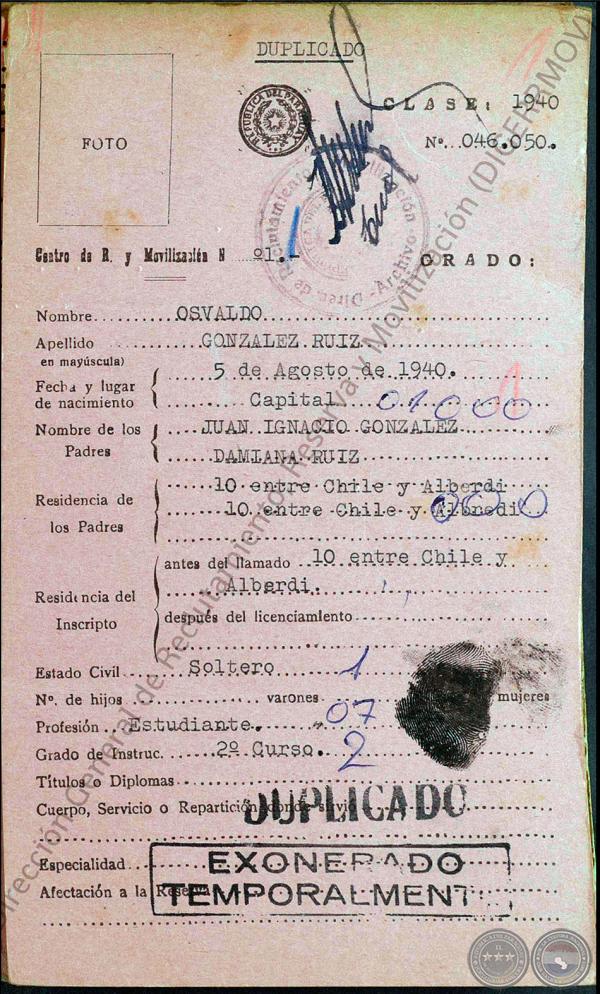 DUPLICADO
FOTO
REPUBLICA DEL PARAGUAY
CLASE: 1940
Nº...046.050.
Centro de R. y Movilización N º1.-
GRADO:
Nombre OSVALDO
Apellido GONZALEZ RUIZ
en mayúscula)
Fecha y lugar 5 de Agosto de 1940.
de nacimiento Capital 01000
Nombre de los JUAN IGNACIO GONZALEZ
Padres DAMIANA RUIZ
10 entre Chile y Alberdi
Residencia de 10 entre Chile y Albredi 000
los Padres
antes del llamado 10 entre Chile y
Alberdi.
Residencia del
Inscripto después del licenciamiento
Estado Civil Soltero 1
Nº. de hijos varones mujeres
Profesión Estudiante. 07
Grado de Instruc. 2º Curso. 2
Títulos o Diplomas
DUPLICADO
Cuerpo, Servicio o Repartición donde sirvió
Especialidad
EXONERADO
Afectación a la Reserva
TEMPORALMENTE
Dirección General de Reclutamiento, Reserva y Movilización (DIGERRMOV)